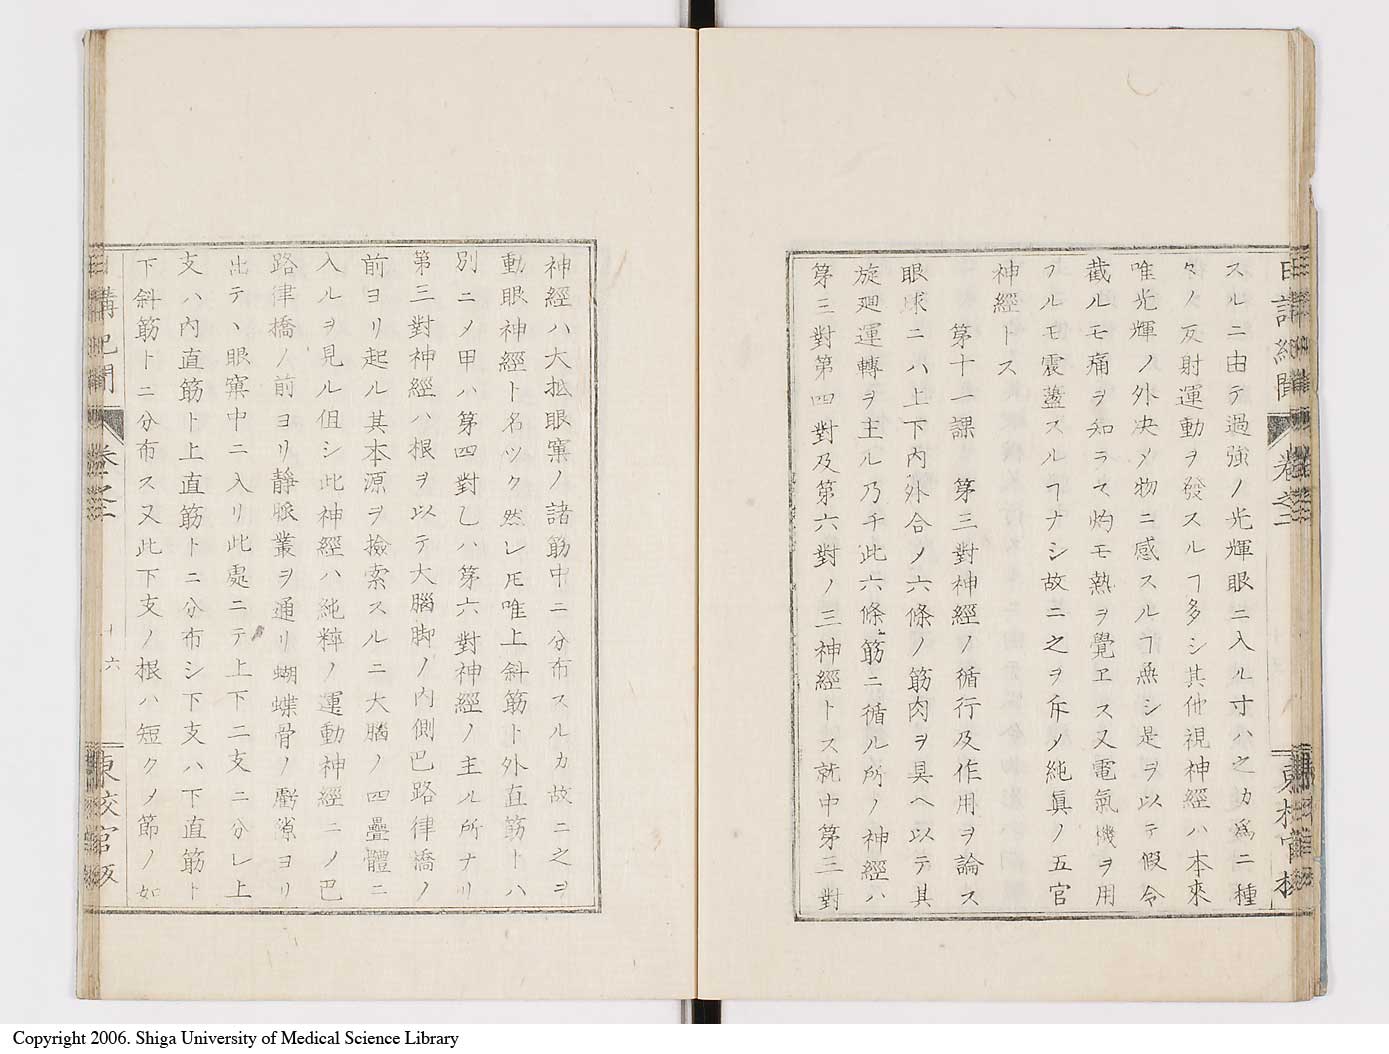 スルニ由テ過強ノ光輝眼ニ入ル寸ハ之カ爲ニ種
々ノ反射運動ヲ發スルヿ多シ其他視神經ハ本來
唯光輝ノ外決〆物ニ感スルヿ無シ是ヲ以テ假令
截ルモ痛ヲ知ラス灼モ熱ヲ覺ヱス又電氣機ヲ用
フルモ震盪スルヿナシ故ニ之ヲ斥〆純眞ノ五官
神經トス
第十一課 第三對神經ノ循行及作用ヲ論ス
眼球ニハ上下內外合〆六條ノ筋肉ヲ具ヘ以テ其
旋廻運轉ヲ主ル乃チ此六條筋ニ循ル所ノ神經ハ
第三對第四對及第六對ノ三神經トス就中第三對
神經ハ大抵眼窠ノ諸筋中ニ分布スルカ故ニ之ヲ
動眼神經ト名ツク然レ𪜈唯上斜筋ト外直筋トハ
別ニ〆甲ハ第四對乙ハ第六對神經ノ主ル所ナリ
第三對神經ハ根ヲ以テ大腦脚ノ內側巴路律橋ノ
前ヨリ起ル其本源ヲ撿索スルニ大腦ノ四疊體ニ
入ルヲ見ル但シ此神經ハ純粹ノ運動神經ニ〆巴
路律橋ノ前ヨリ靜脈叢ヲ通リ蝴蝶骨ノ罅隙ヨリ
出テヽ眼窠中ニ入リ此處ニテ上下二支ニ分レ上
支ハ內直筋ト上直筋トニ分布シ下支ハ下直筋ト
下斜筋トニ分布ス又此下支ノ根ハ短ク〆節ノ如
日講記聞 卷之二 十六 東校官板
Copyright 2006. Shiga University of Medical Science Library